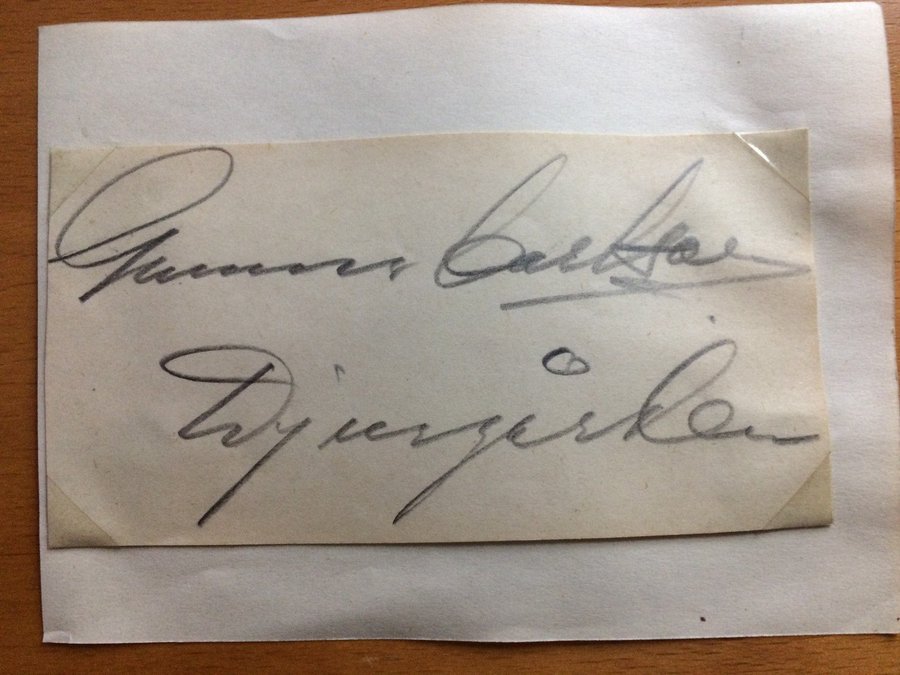 Gunnar Carlsson
Djurgården